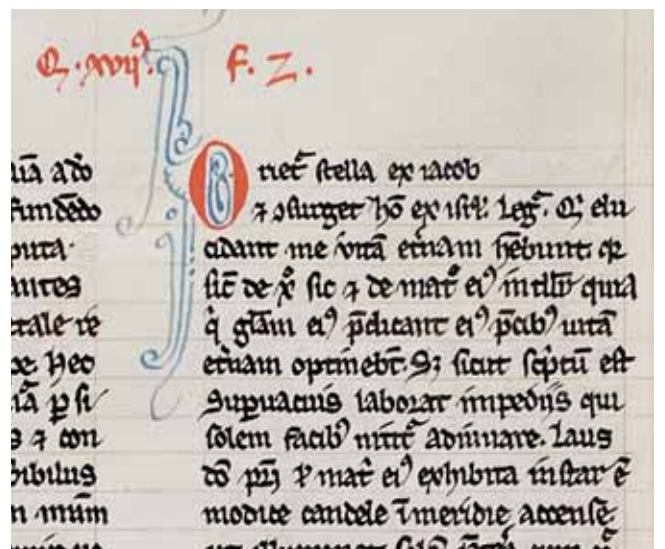 Q. xvijꝰ. f. z.
iā ado
fundēdo
puta.
antes
tale re
Hec
iā ꝑ si
s ⁊ con
hibilus
n mūm
Orietᷣ stella ex iacob
⁊ ꝯsurget hō ex isrl. Legᷣ. Qͥ elu
cidant me vitā etnam hēbunt qꝛ
sic̄ de xᵒ sic ⁊ de matᵉ eiꝰ intllr̄ quia
qͥ gl̄am eiꝰ p̄dicant eiꝰ p̄cibꝰ uitā
etnam optinebt̄. Sꝫ sicut scͥptū est
Supuacuis laborat impedijs qui
solem facibꝰ nititᷣ adiuuare. Laus
dō pr̄i ꝉ matᵉ eiꝰ exhibita instar ē
modice candele ī meridie accense.